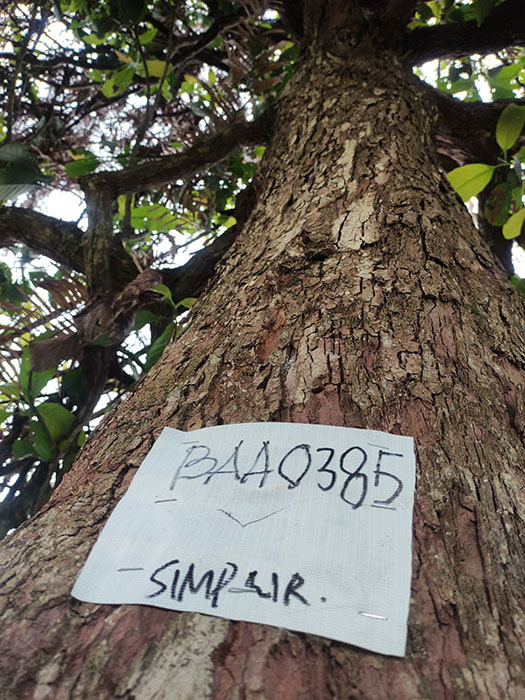 BAA0385
SIMPAIR.